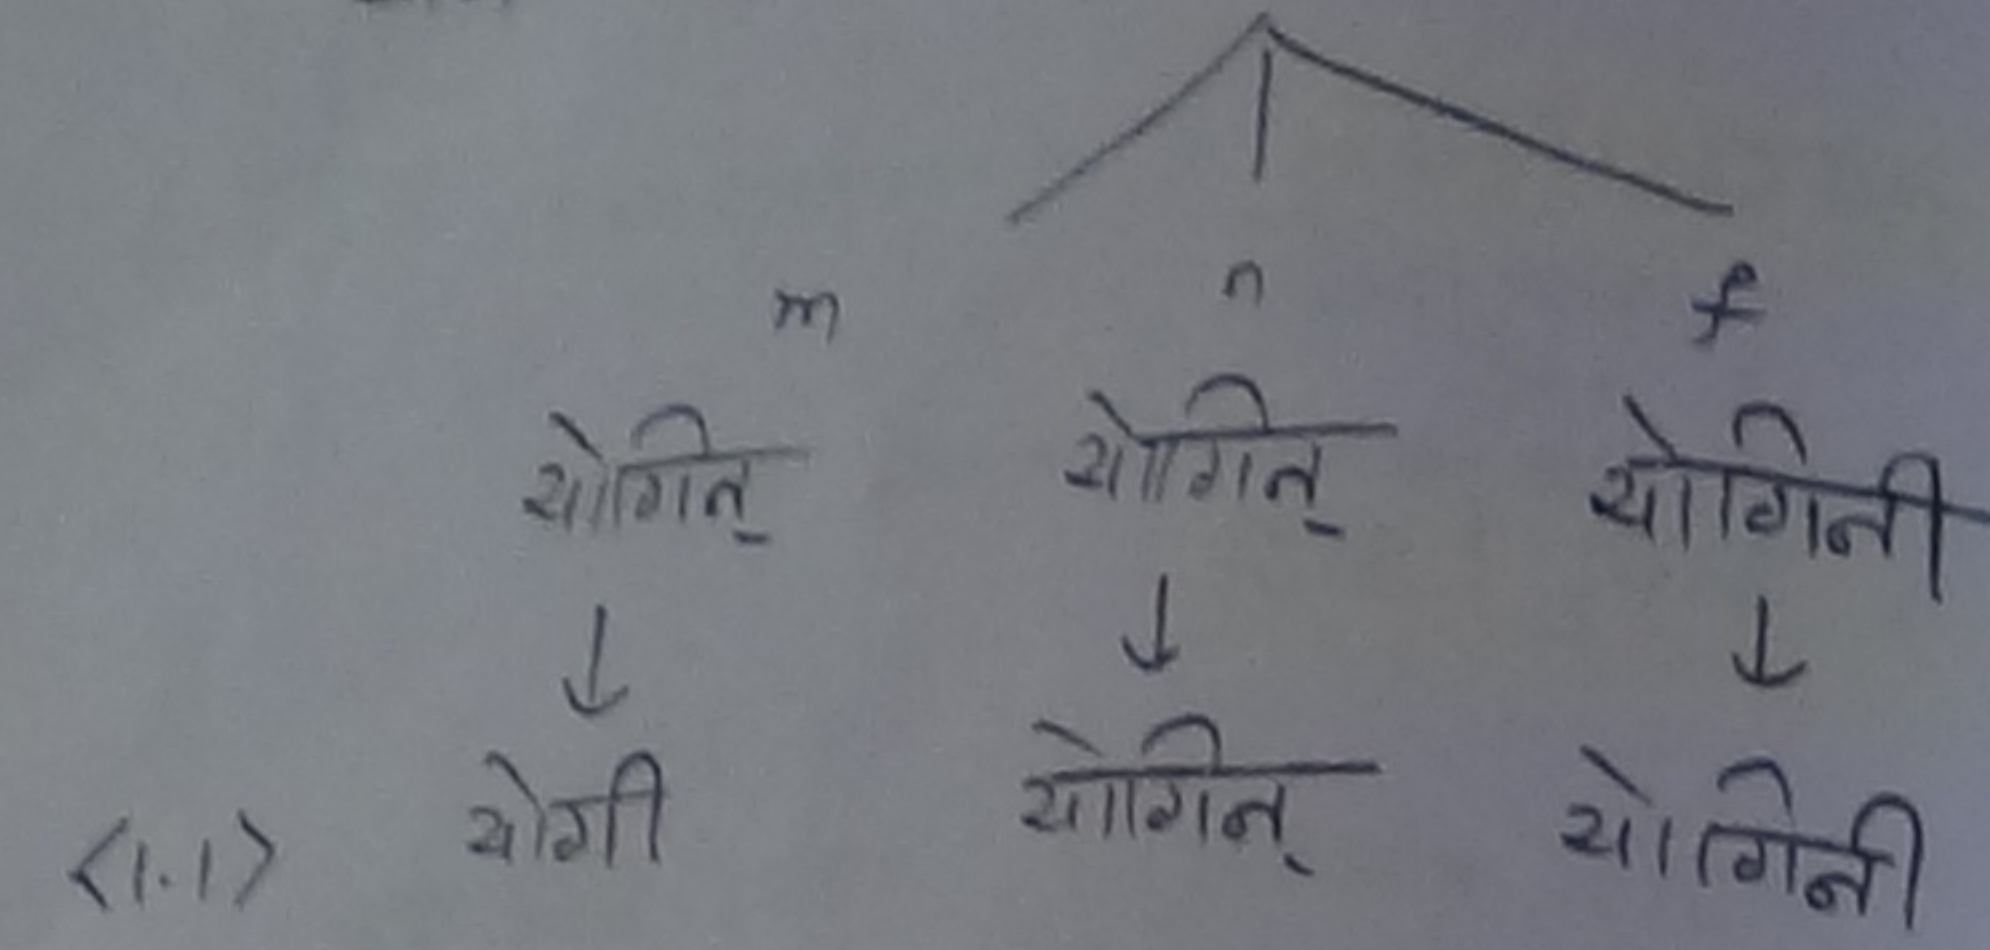 m n f
योगिन् योगिन् योगिनी
↓ ↓ ↓
<1.1> योगी योगिन् योगिनी